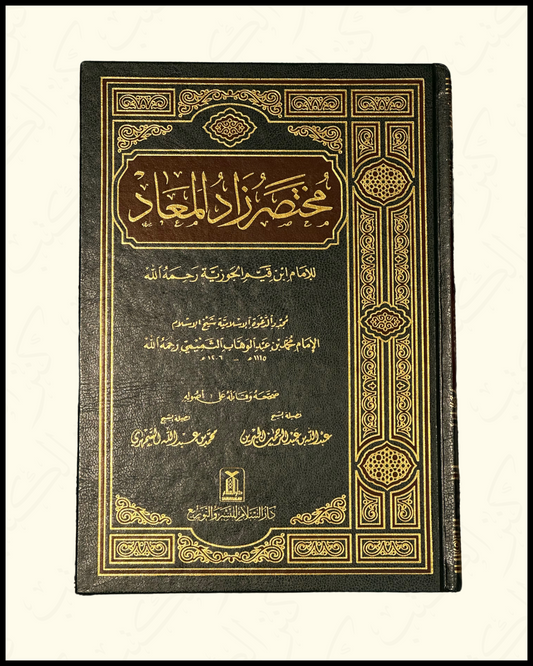 مُختَصَر زَادُ المَعَاد
للإمَام ابن قَيِّم الجَوزِيَّة رَحِمَهُ اللهُ
مُجَدِّد الدَّعْوَة الإسْلَامِيَّة شَيْخُ الإسْلَام
الإمَام مُحَمَّد بن عَبدِ الوَهَّاب التَّمِيمِي رَحِمَهُ اللهُ
١١١٥ھ ١٢٠٦ھ
صَحَّحَهُ وَقَابَلَهُ عَلى أُصُولِهِ
فضيلة الشيخ
عبدالله بن عبدالرحمن الجبرين
فضيلة الشيخ
محمد بن عبدالله
دَارُ السَّلَام لِلنَّشرِ وَالتَّوزِيع